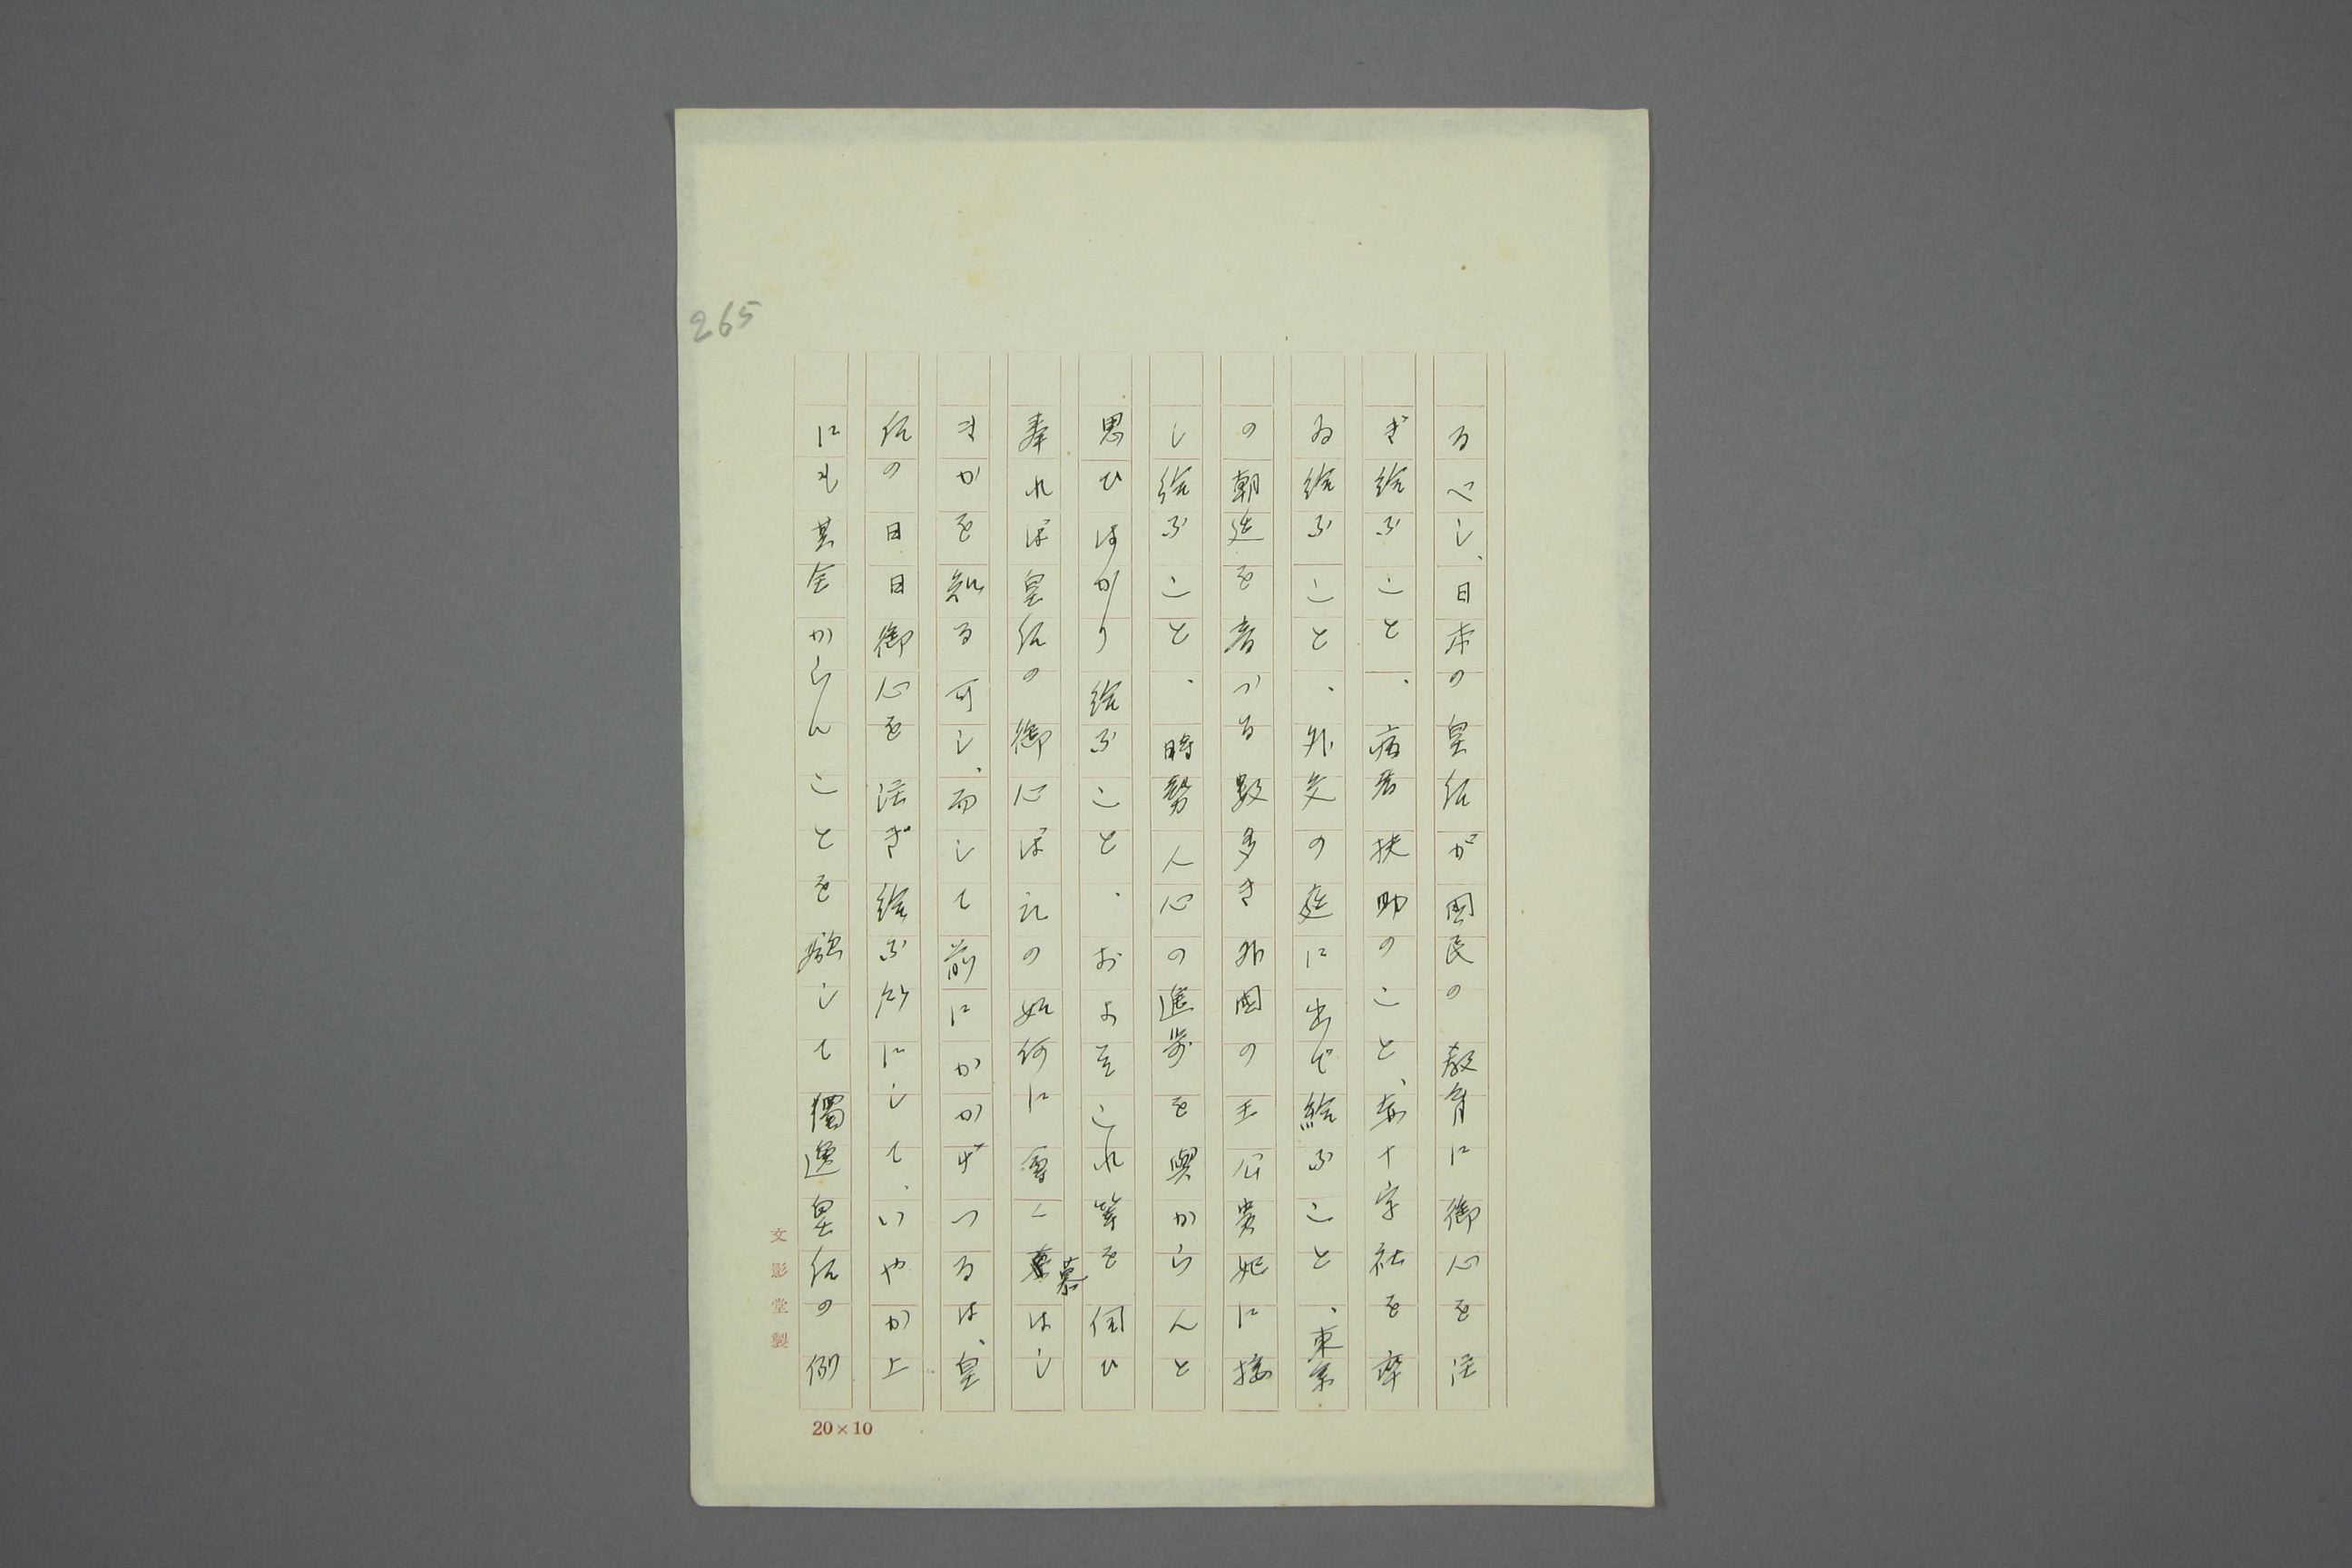 265
るべし、日本の皇后が國民の教育に御心を注
ぎ給ふこと、病者扶助のこと、赤十字社を率
ゐ給ふこと、外交の庭に出で給ふこと、東京
の朝廷を音づる數多き外國の王公貴妃に接
し給ふこと、時勢人心の進歩を與からんと
思ひはかり給ふこと、およそこれ等を伺ひ
奉れば皇后の御心ばえの如何に雲上慕はし
きかを知る可し、而して前にかかげつるは、皇
后の日日御心を注ぎ給ふ所にして、いやが上
にも其全からんことを勵して獨逸皇后の例
文影堂製
20×10